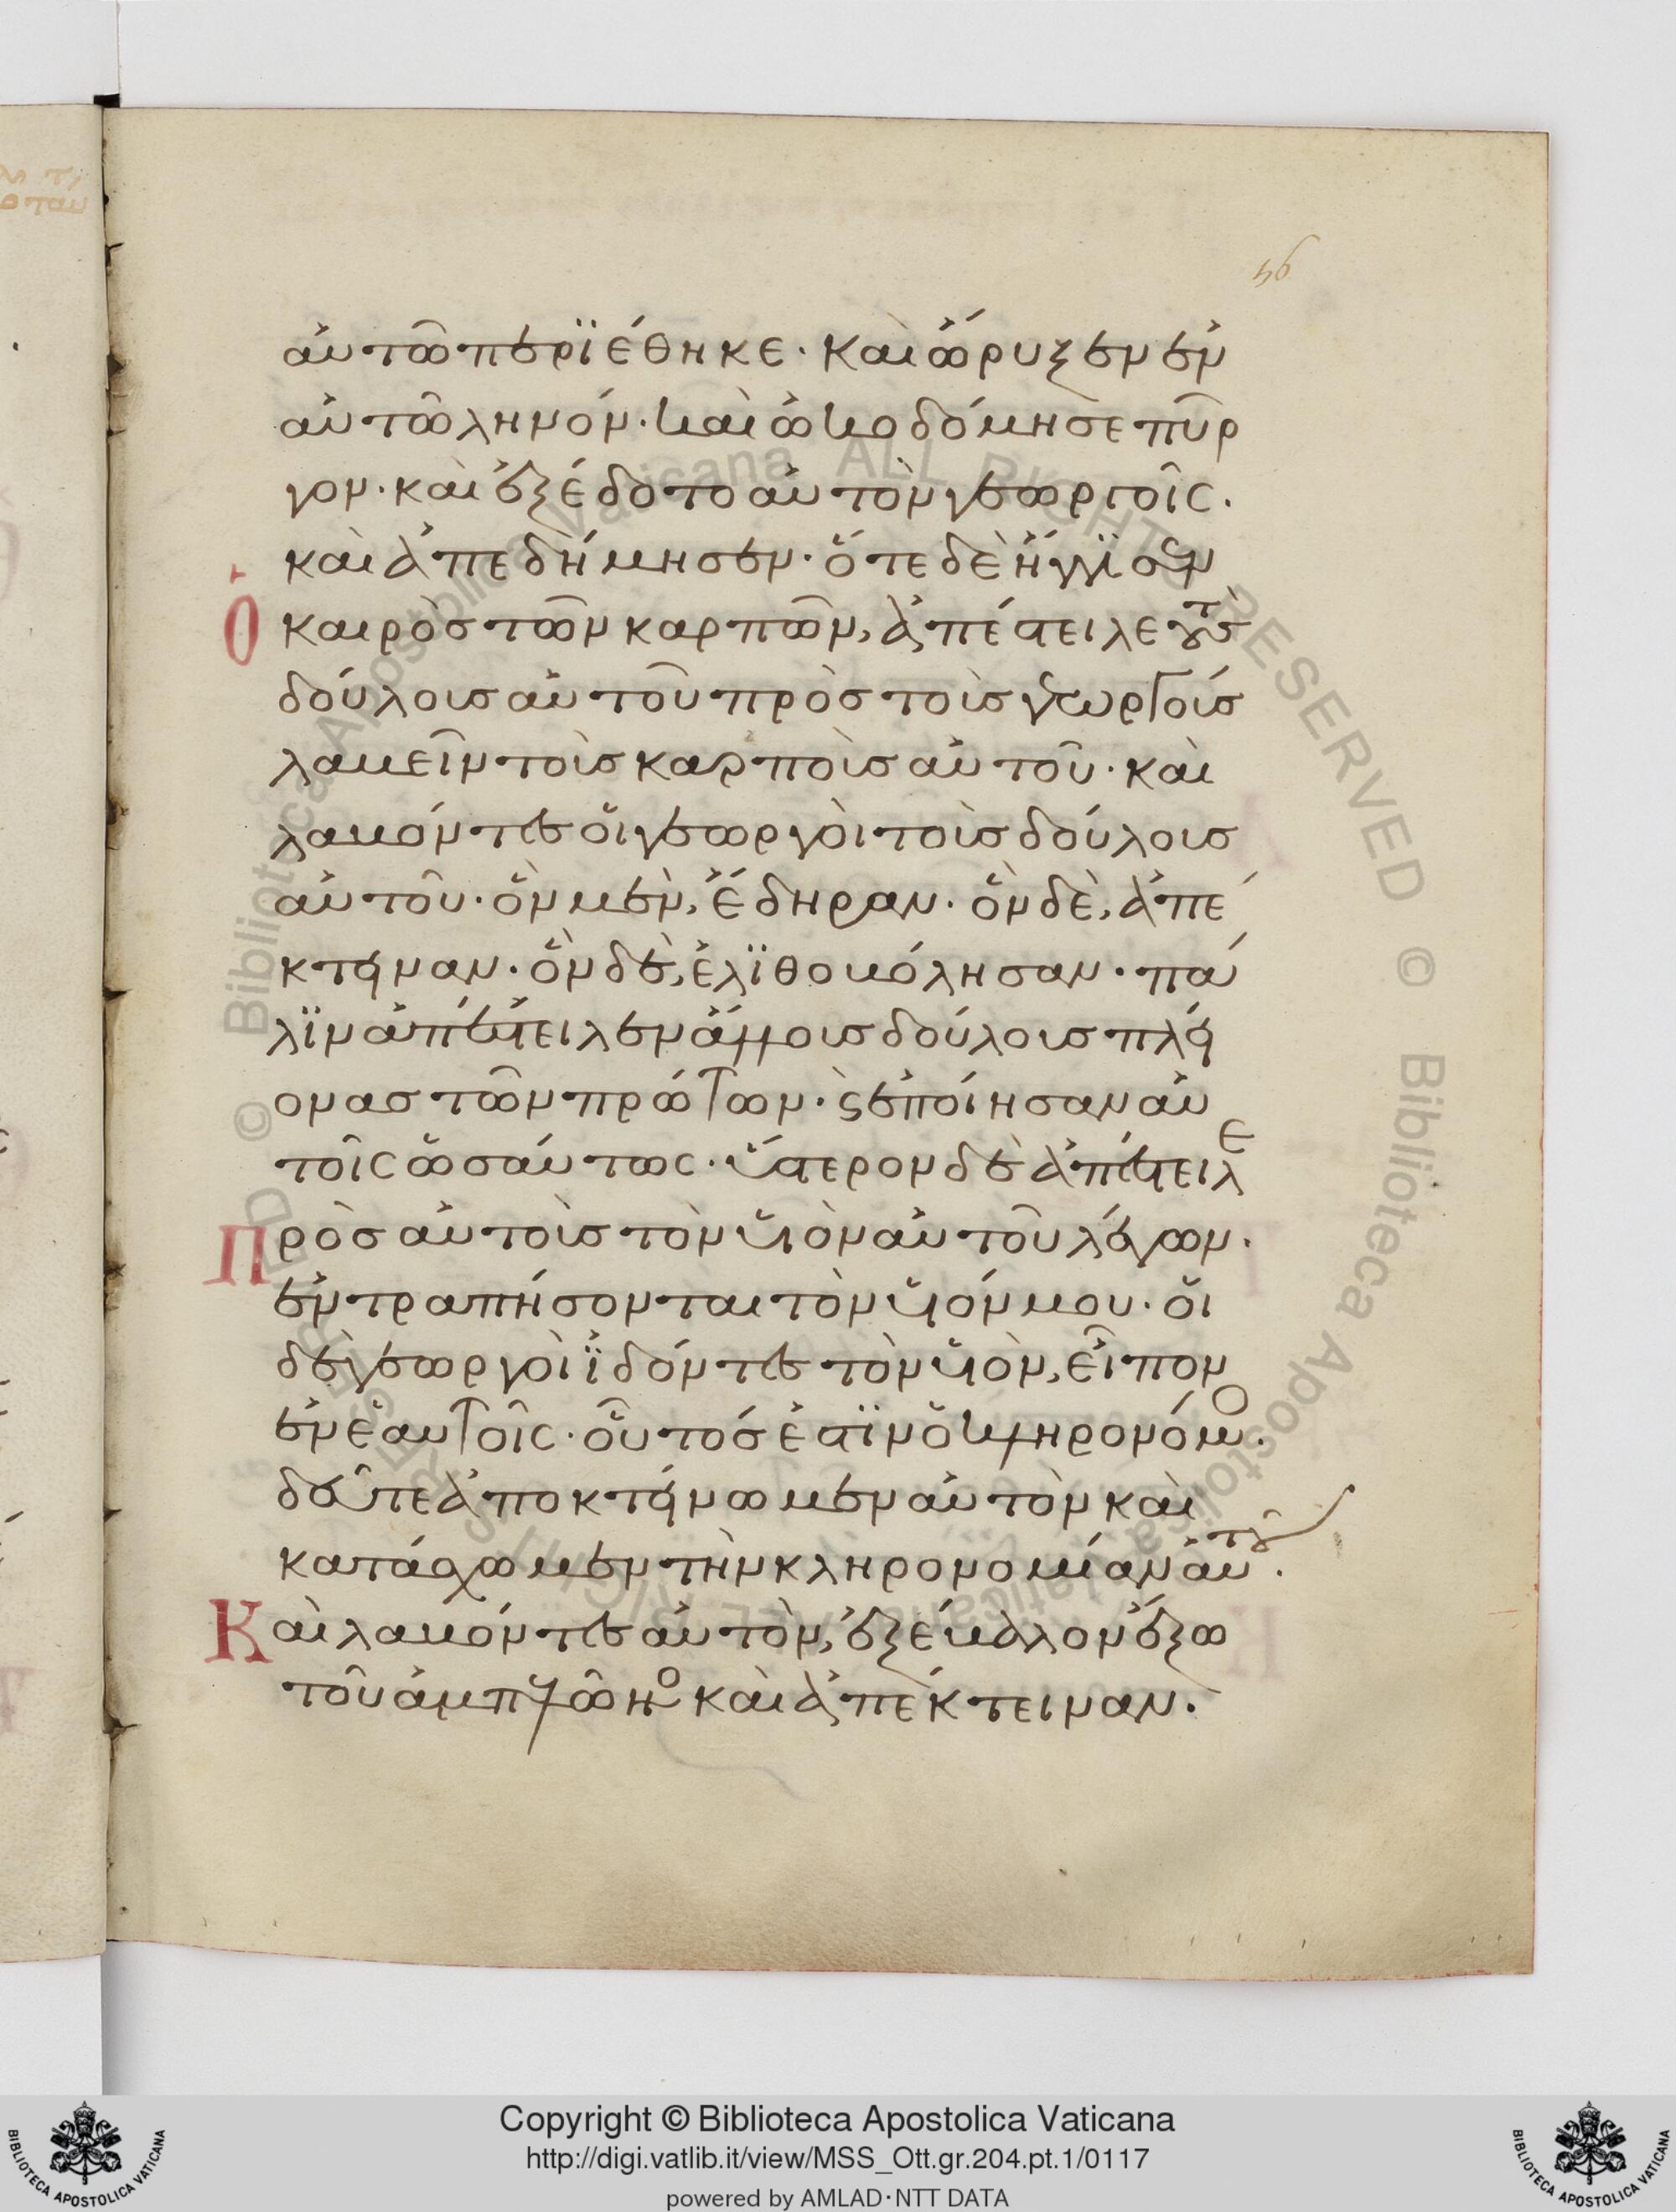 56
αὐτῶ περϊέθηκε· καὶ ὤρυξεν ἐν
αὐτῶ ληνόν· καὶ ὠκοδόμησε πῦρ
γον· καὶ ἐξέδοτο αὐτὸν γεωργοῖς·
καὶ ἀπεδήμησεν· ὅτε δὲ ἤγγϊσεν
Ὁ καιρὸσ τῶν καρπῶν, ἀπέστειλε τοὺσ
δούλουσ αὐτοῦ πρὸσ τοὺσ γεωργούσ
λαβεῖν τοὺσ καρποὺσ αὐτοῦ· καὶ
λαβόντεσ οἱ γεωργοὶ τοὺσ δούλουσ
αὐτοῦ· ὃν μὲν, ἔδηραν· ὃν δὲ, ἀπέ
κτειναν· ὃν δὲ, ἐλϊθοβόλησαν· πά
λϊν ἀπέστειλεν ἄλλουσ δούλουσ πλεί
ονασ τῶν πρώτων· ϛ ἐποίησαν αὐ
τοῖς ὡσαύτως· ὕστερον δὲ ἀπέστειλε
Πρὸσ αὐτοὺσ τὸν υἱὸν αὐτοῦ λέγων·
ἐντραπήσονται τὸν υἱόν μου· οἱ
δὲ γεωργοὶ ἰδόντεσ τὸν υἱὸν, εἶπον
ἐν ἑαυτοῖς· οὗτόσ ἐστϊν ὁ κληρονόμο·
δεῦτε ἀποκτείνωμεν αὐτὸν καὶ
κατάσχωμεν τὴν κληρονομίαν αὐτοῦ·
Καὶ λαβόντεσ αὐτὸν, ἐξέβαλον ἔξω
τοῦ ἀμπελῶνο καὶ ἀπέκτειναν·
Copyright © Biblioteca Apostolica Vaticana
http://digi.vatlib.it/view/MSS_Ott.gr.204.pt.1/0117
powered by AMLAD·NTT DATA
BIBLIOTECA APOSTOLICA VATICANA
BIBLIOTECA APOSTOLICA VATICANA